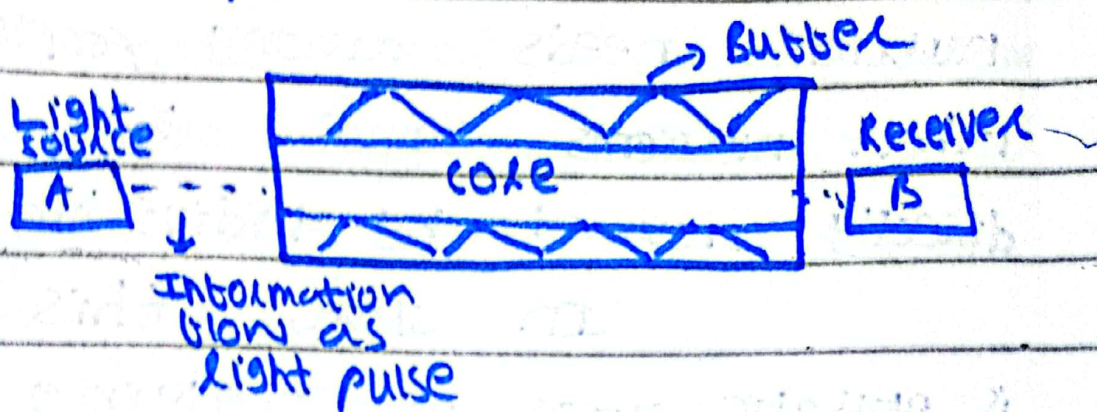 Buffer
Light
source
A
core
Receiver
B
Information
flow as
light pulse